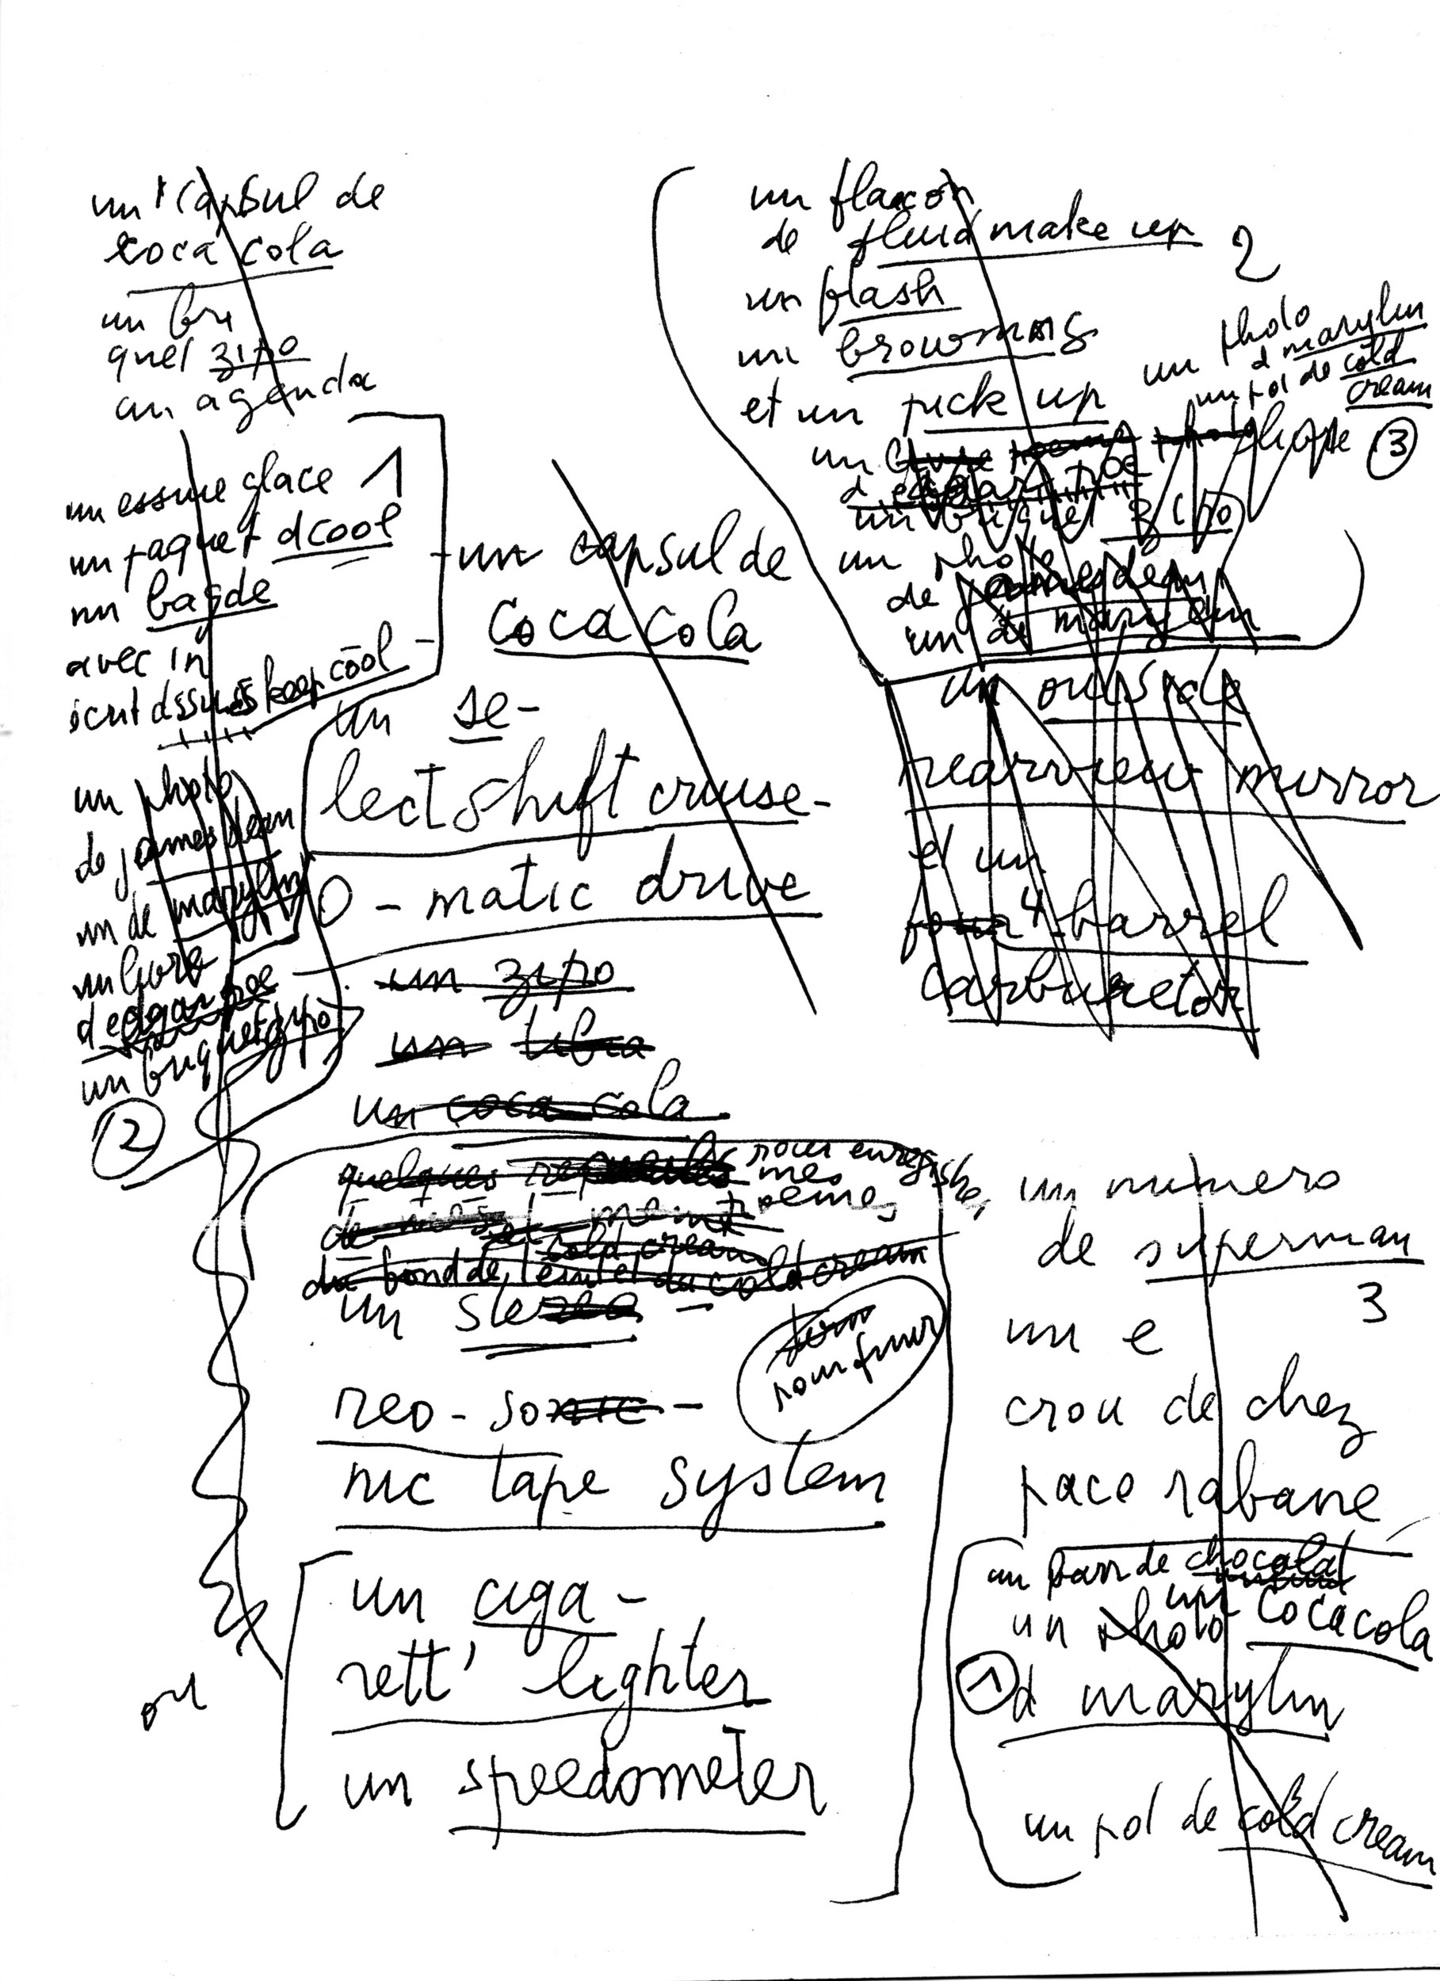 un capsul de
coca cola
un bri
quet zipo
un agenda
un essuie glace 1
un paquet dcool
un bagde
avec in
scrit dssus keep cool
un photo
de james dean
un de marylin
un livre
dedgar poe
un briquet zipo
2
un capsul de
coca cola
un se-
lect shift cruise-
O-matic drive
un zipo
un
un coca cola
quelques
mes
poemes
de mes
cold cream
du fond de teint et du cold cream
un ste
reo-so
nic tape system
pour fumer
ou
un ciga-
rett' lighter
un speedometer
un flacon
de fluid make up
2
un flash
un browning
et un pick up
un photo
d marylin
un pot de cold
cream
3
un
d edgar poe
un briquet zipo
un pho
de james dean
un de marylin
un outside
rearview mirror
et un
four 4-barrel
carburetor
un numero
de superman
3
un e
crou de chez
paco rabane
un pain de chocolat
un coca cola
un photo
1
d marylin
un pot de cold cream